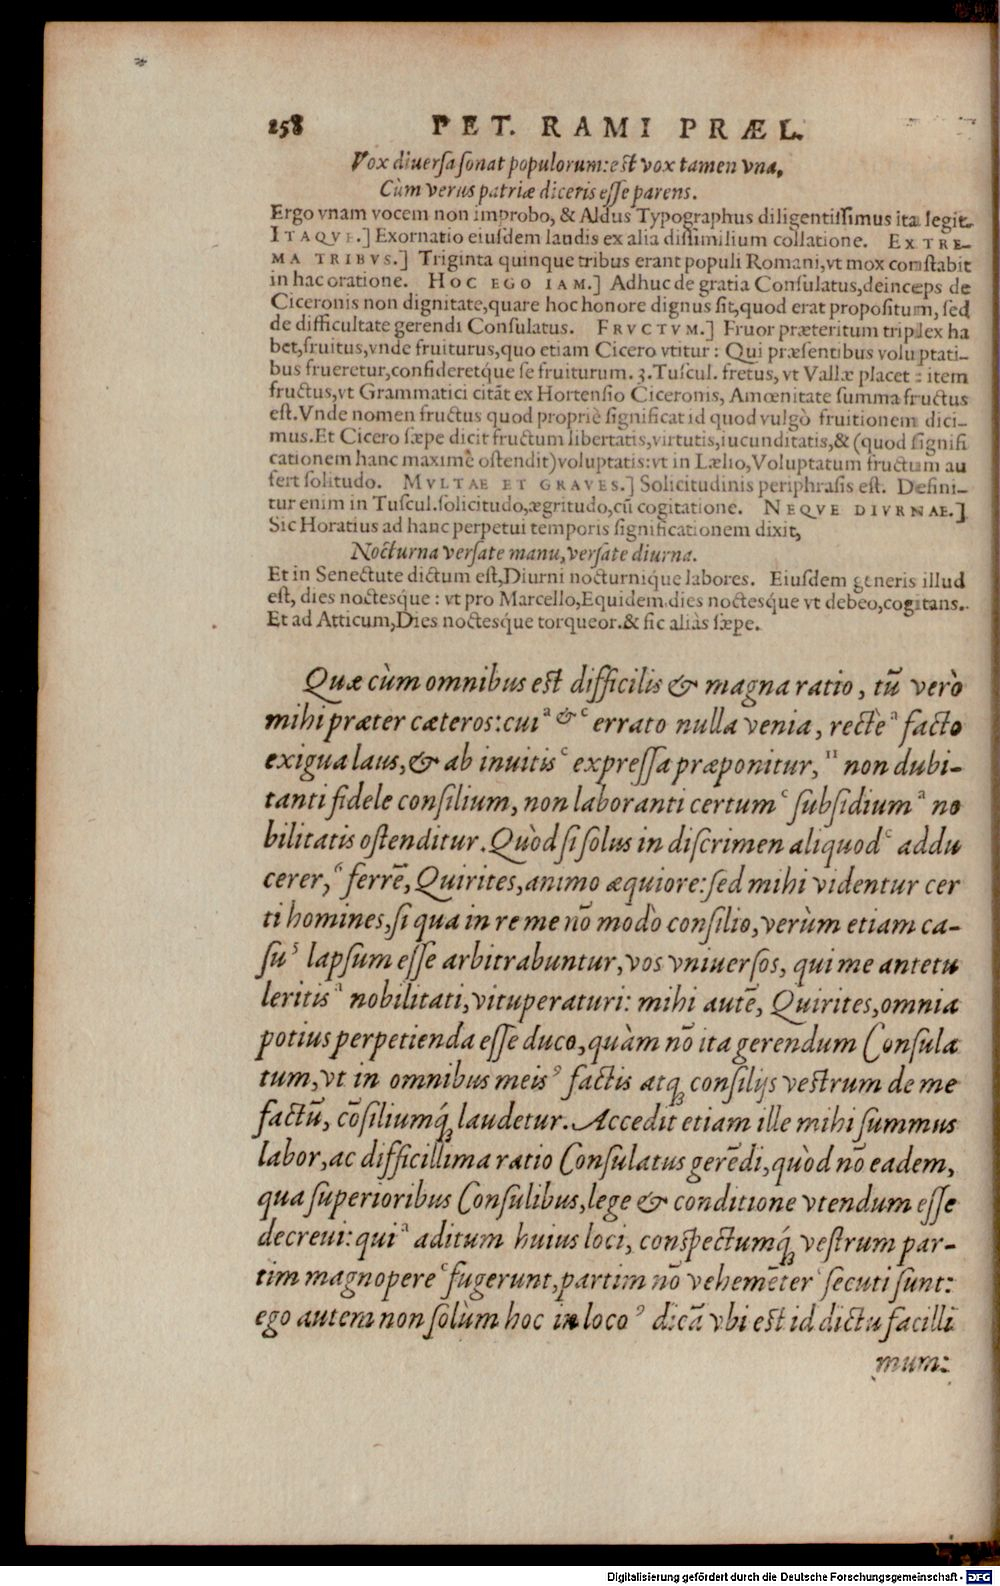 258 PET. RAMI PRÆL.
Vox diuersa sonat populorum: est vox tamen vna,
Cùm verus patriæ diceris esse parens.
Ergo vnam vocem non improbo, & Aldus Typographus diligentissimus ita legit.
ITAQVE.] Exornatio eiusdem laudis ex alia dissimilium collatione. EXTRE-
MA TRIBVS.] Triginta quinque tribus erant populi Romani, vt mox constabit
in hac oratione. HOC EGO IAM.] Adhuc de gratia Consulatus, deinceps de
Ciceronis non dignitate, quare hoc honore dignus sit, quod erat propositum, sed
de difficultate gerendi Consulatus. FRVCTVM.] Fruor præteritum triplex ha
bet, fruitus, vnde fruiturus, quo etiam Cicero vtitur: Qui præsentibus voluptati-
bus frueretur, confideretque se fruiturum. 3. Tuscul. fretus, vt Vallæ placet: item
fructus, vt Grammatici citāt ex Hortensio Ciceronis, Amœnitate summa fructus
est. Vnde nomen fructus quod propriè significat id quod vulgò fruitionem dici-
mus. Et Cicero sæpe dicit fructum libertatis, virtutis, iucunditatis, & (quod signifi
cationem hanc maximè ostendit) voluptatis: vt in Lælio, Voluptatum fructum au
fert solitudo. MVLTAE ET GRAVES.] Solicitudinis periphrasis est. Defini-
tur enim in Tuscul. solicitudo, ægritudo, cū cogitatione. NEQVE DIVRNAE.]
Sic Horatius ad hanc perpetui temporis significationem dixit,
Nocturna versate manu, versate diurna.
Et in Senectute dictum est, Diurni nocturnique labores. Eiusdem generis illud
est, dies noctesque: vt pro Marcello, Equidem dies noctesque vt debeo, cogitans.
Et ad Atticum, Dies noctesque torqueor. & sic aliàs sæpe.
Quæ cùm omnibus est difficilis & magna ratio, tū verò
mihi præter cæteros: cui a & c errato nulla venia, rectè a facto
exigua laus, & ab inuitis c expressa præponitur, 11 non dubi-
tanti fidele consilium, non laboranti certum c subsidium a no
bilitatis ostenditur. Quòd si solus in discrimen aliquod c addu
cerer, ferrē, Quirites, animo æquiore: sed mihi videntur cer
ti homines, si qua in re me nō modò consilio, verùm etiam ca-
su lapsum esse arbitrabuntur, vos vniuersos, qui me antetu
leritis a nobilitati, vituperaturi: mihi autē, Quirites, omnia
potius perpetienda esse duco, quàm nō ita gerendum Consula
tum, vt in omnibus meis factis atq; consilijs vestrum de me
factū, cōsiliumq́; laudetur. Accedit etiam ille mihi summus
labor, ac difficillima ratio Consulatus gerēdi, quòd nō eadem,
qua superioribus Consulibus, lege & conditione vtendum esse
decreui: qui a aditum huius loci, conspectumq́; vestrum par-
tim magnopere c fugerunt, partim nō vehemēter c secuti sunt:
ego autem non solùm hoc in loco dicā vbi est id dictu facilli
mum:
Digitalisierung gefördert durch die Deutsche Forschungsgemeinschaft - DFG